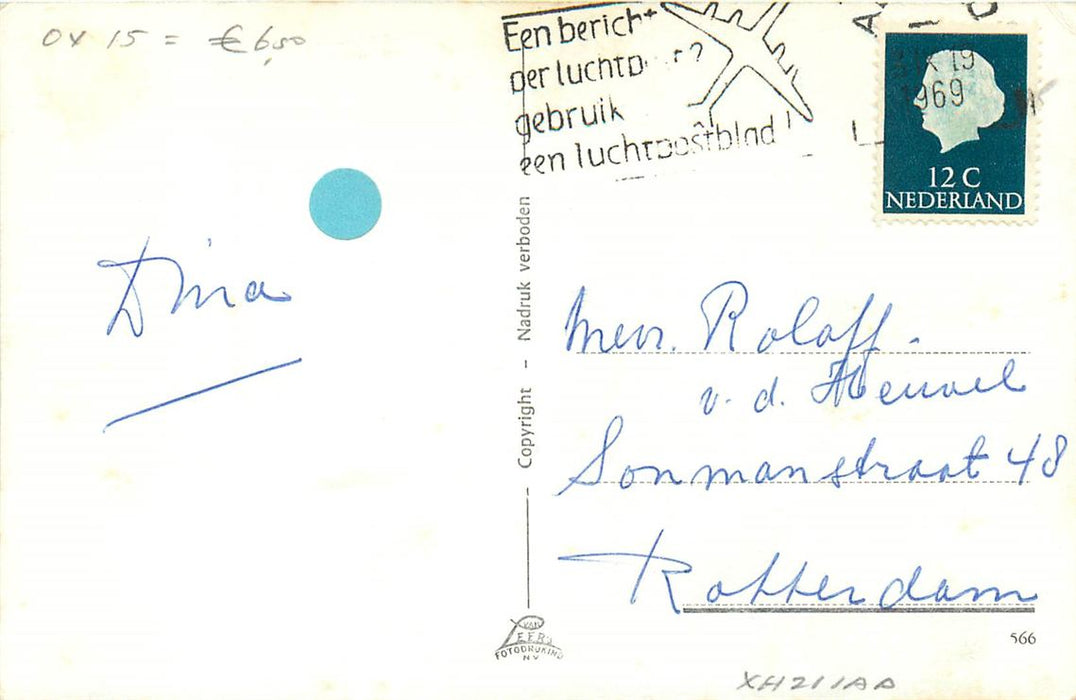 0X 15 = € 6,50
Een bericht
per luchtpost?
gebruik
een luchtpostblad!
19
1969
12 C
NEDERLAND
Dina
Copyright - Nadruk verboden
Mevr. Roloff -
v. d. Heuvel
Sonmanstraat 48
Rotterdam
VAN
LEER'S
FOTODRUKIND
N V
566
XH211AA